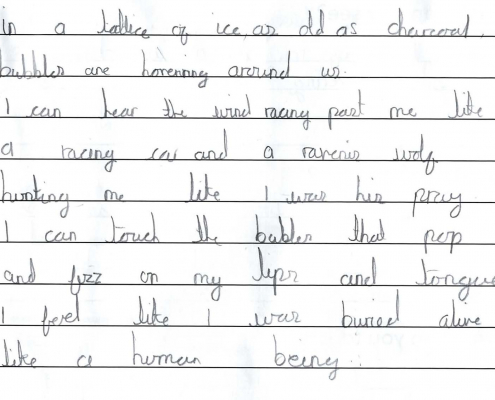 in a lattice of ice, as old as charcoal.
bubbles are hovening around us.
I can hear the wind racing past me like
a racing car and a ravenis wolf
hunting me like I was his pray
I can touch the bubbles that pop
and fizz on my lips and tongue
I feel like I was buried alive
like a human being.